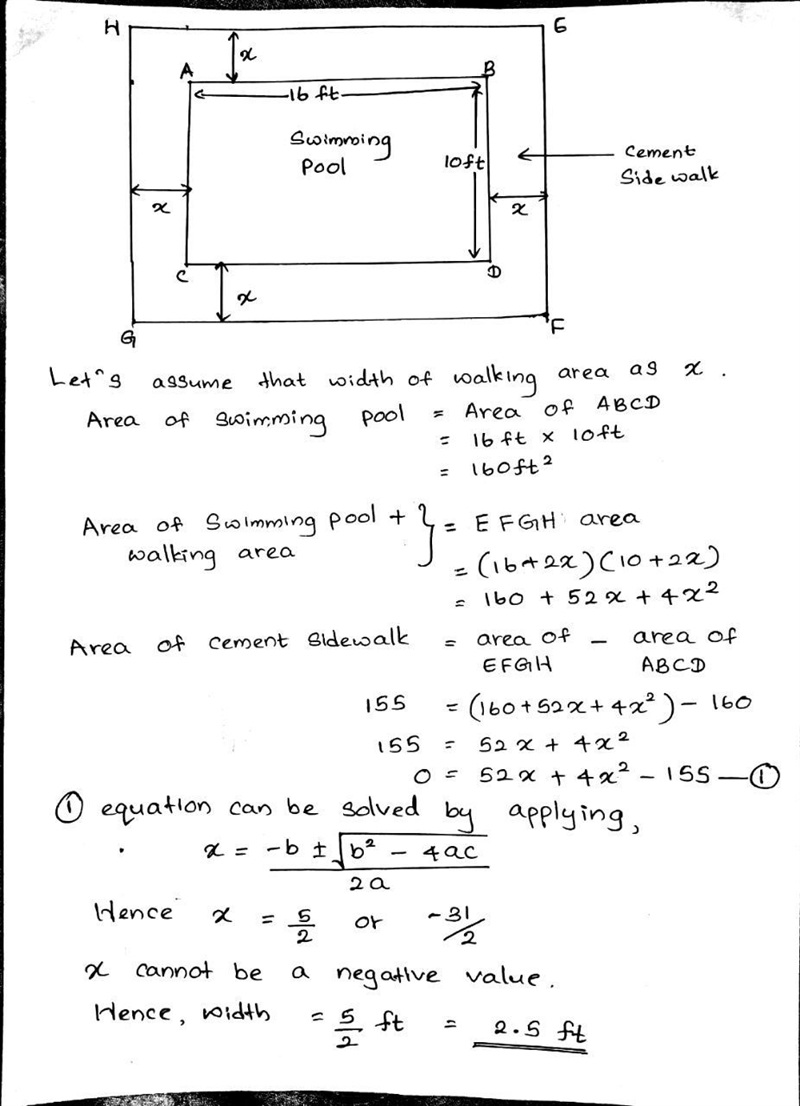 H E
x
A B
16 ft
Swimming
Pool
10ft
Cement
Side walk
x x
C D
x
G F
Let's assume that width of walking area as x .
Area of swimming pool = Area of ABCD
= 16 ft x 10ft
= 160ft²
Area of Swimming pool + } = EFGH area
walking area
= (16+2x)(10+2x)
= 160 + 52x + 4x²
Area of cement sidewalk = area of - area of
EFGH ABCD
155 = (160+52x+4x²) - 160
155 = 52x + 4x²
0 = 52x + 4x² - 155 — ①
① equation can be solved by applying,
x = -b ± √b² - 4ac
2a
Hence x = 5/2 or -31/2
x cannot be a negative value.
Hence, width = 5/2 ft = 2.5 ft